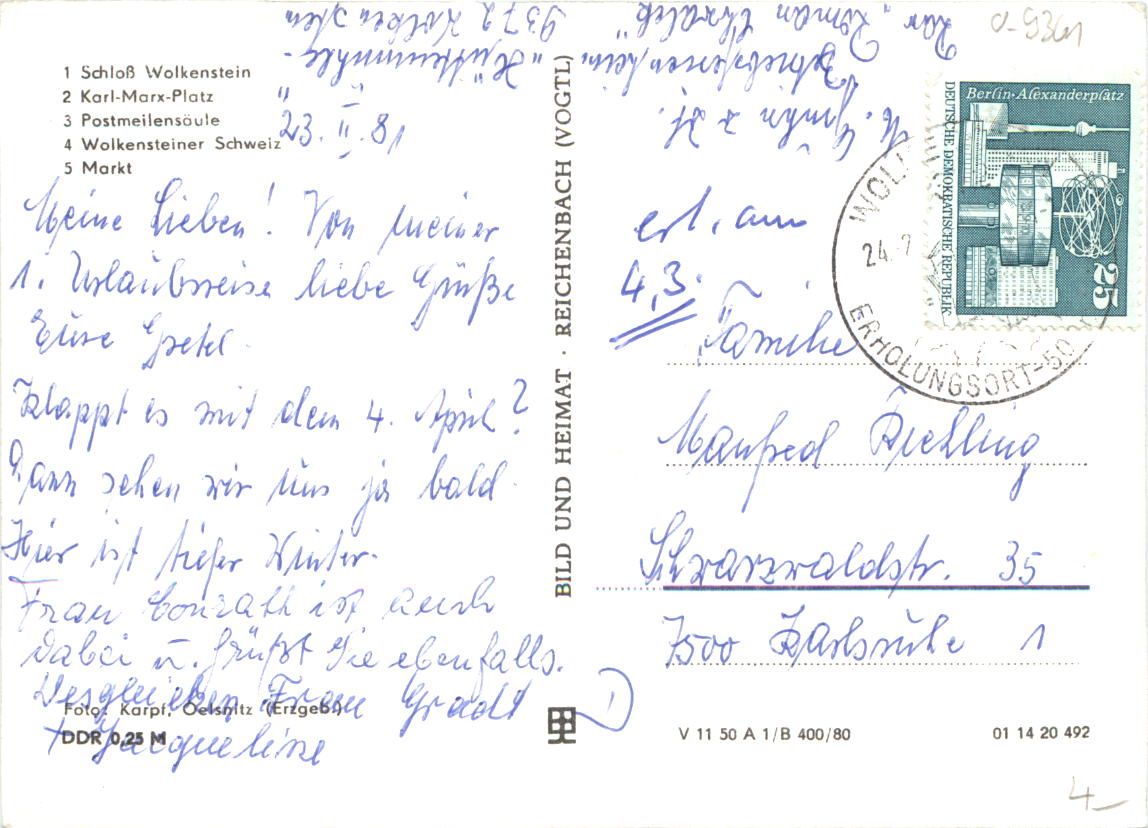 1 Schloß Wolkenstein
2 Karl-Marx-Platz
3 Postmeilensäule
4 Wolkensteiner Schweiz
5 Markt
23. II. 81
Meine Lieben! Von meiner
1. Urlaubsreise liebe Grüße
Eure Gretel.
Klappt es mit dem 4. April?
Dann sehen wir uns ja bald.
Hier ist tiefer Winter.
Frau Conrath ist auch
dabei u. grüßt Sie ebenfalls.
Desgleichen Frau Gradt
+ Jacqueline
Foto: Karpf, Oelsnitz (Erzgeb.)
DDR 0,25 M
BILD UND HEIMAT · REICHENBACH (VOGTL)
z. Zt.
"Hüttenmühle"
9372 Wolkenstein
0-9361
Berlin-Alexanderplatz
DEUTSCHE DEMOKRATISCHE REPUBLIK
25
24.-2
ERHOLUNGSORT-50
erh. am
4.3.
Familie
Manfred
Schwarzwaldstr. 35
7500 Karlsruhe 1
V 11 50 A 1/B 400/80
01 14 20 492
4-